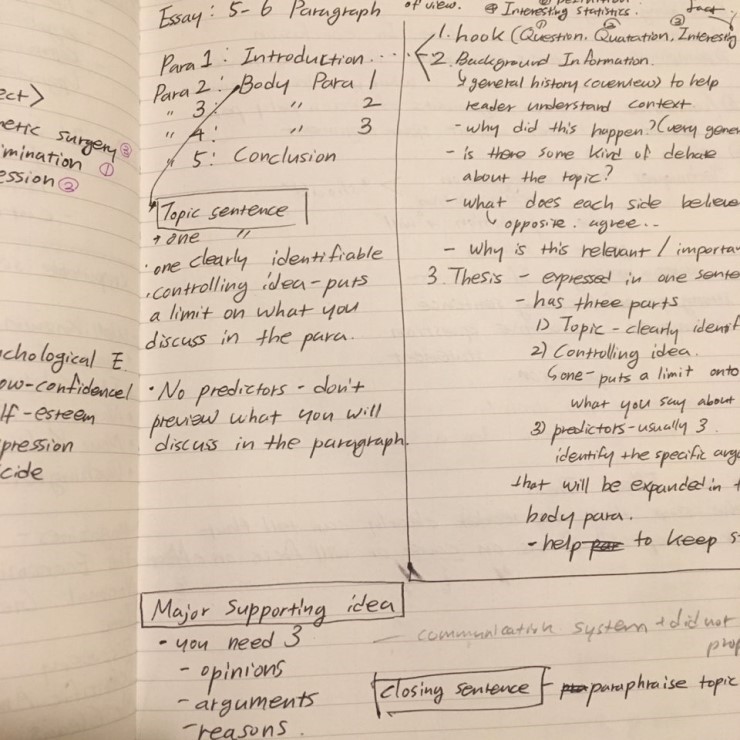 ect>
netic surgery ②
imination ①
ession ②
ychological E.
ow-confidence
lf-esteem
pression
cide
Essay: 5-6 Paragraph
Para 1: Introduction...
Para 2: Body Para 1
" 3: " 2
" 4: " 3
" 5: Conclusion
Topic sentence
one "
· one clearly identifiable
· controlling idea - puts
a limit on what you
discuss in the para.
· No predictors - don't
preview what you will
discuss in the paragraph.
of view.
Interesting statistics.
fact
① ② ③
1. hook (Question. Quatation. Interesting
2. Background Information.
↳ general history (overview) to help
reader understand context
- why did this happen? (very gener
- is there some kind of debate
about the topic?
- what does each side believe
opposite. agree..
- Why is this relevant / importan
3. Thesis - expressed in one sente
- has three parts
1) Topic - clearly identif
2) Controlling idea.
↳ one - puts a limit onto
what you say about
3) predictors - usually 3.
identify the specific argu
that will be expanded in t
body para.
- help to keep s
Major supporting idea
- you need 3
- opinions
- arguments
- reasons.
- communication system + did not
prop
closing sentence - paraphraise topic